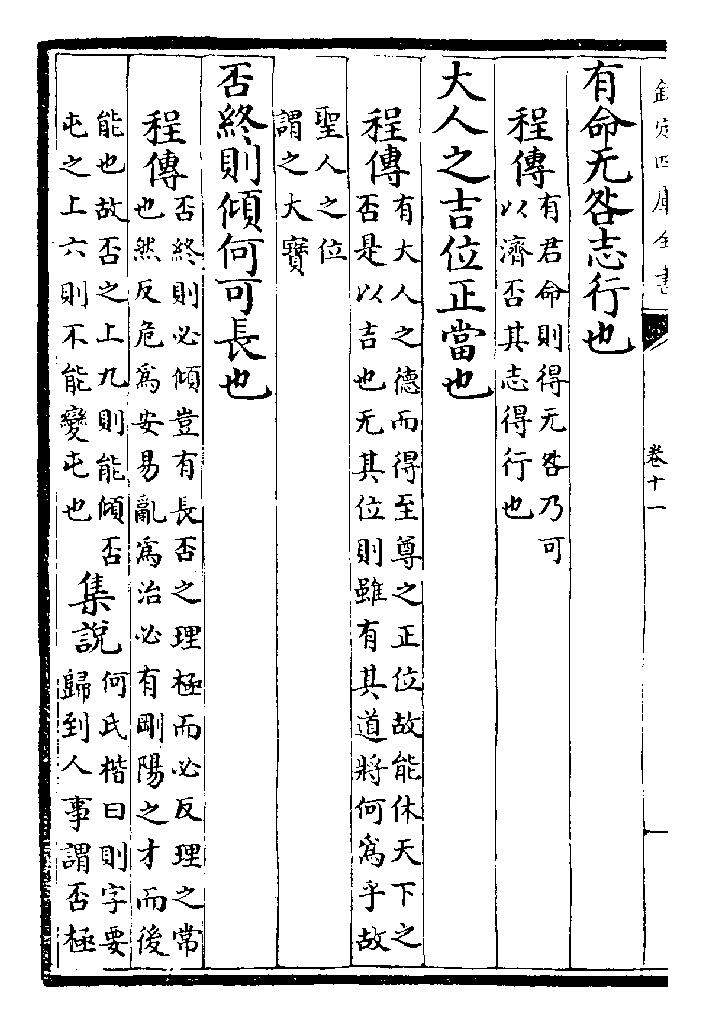 欽定四庫全書
卷十一
有命无咎志行也
程傳
有君命則得无咎乃可
以濟否其志得行也
大人之吉位正當也
程傳
有大人之德而得至尊之正位故能休天下之
否是以吉也无其位則雖有其道將何為乎故
聖人之位
謂之大寳
否終則傾何可長也
程傳
否終則必傾豈有長否之理極而必反理之常
也然反危為安易亂為治必有剛陽之才而後
能也故否之上九則能傾否
屯之上六則不能變屯也
集説
何氏楷曰則字要
歸到人事謂否極